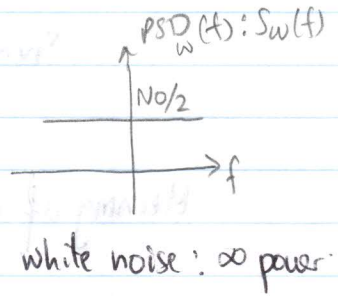 PSD_W(f): S_W(f)
N0/2
f
white noise: ∞ power.